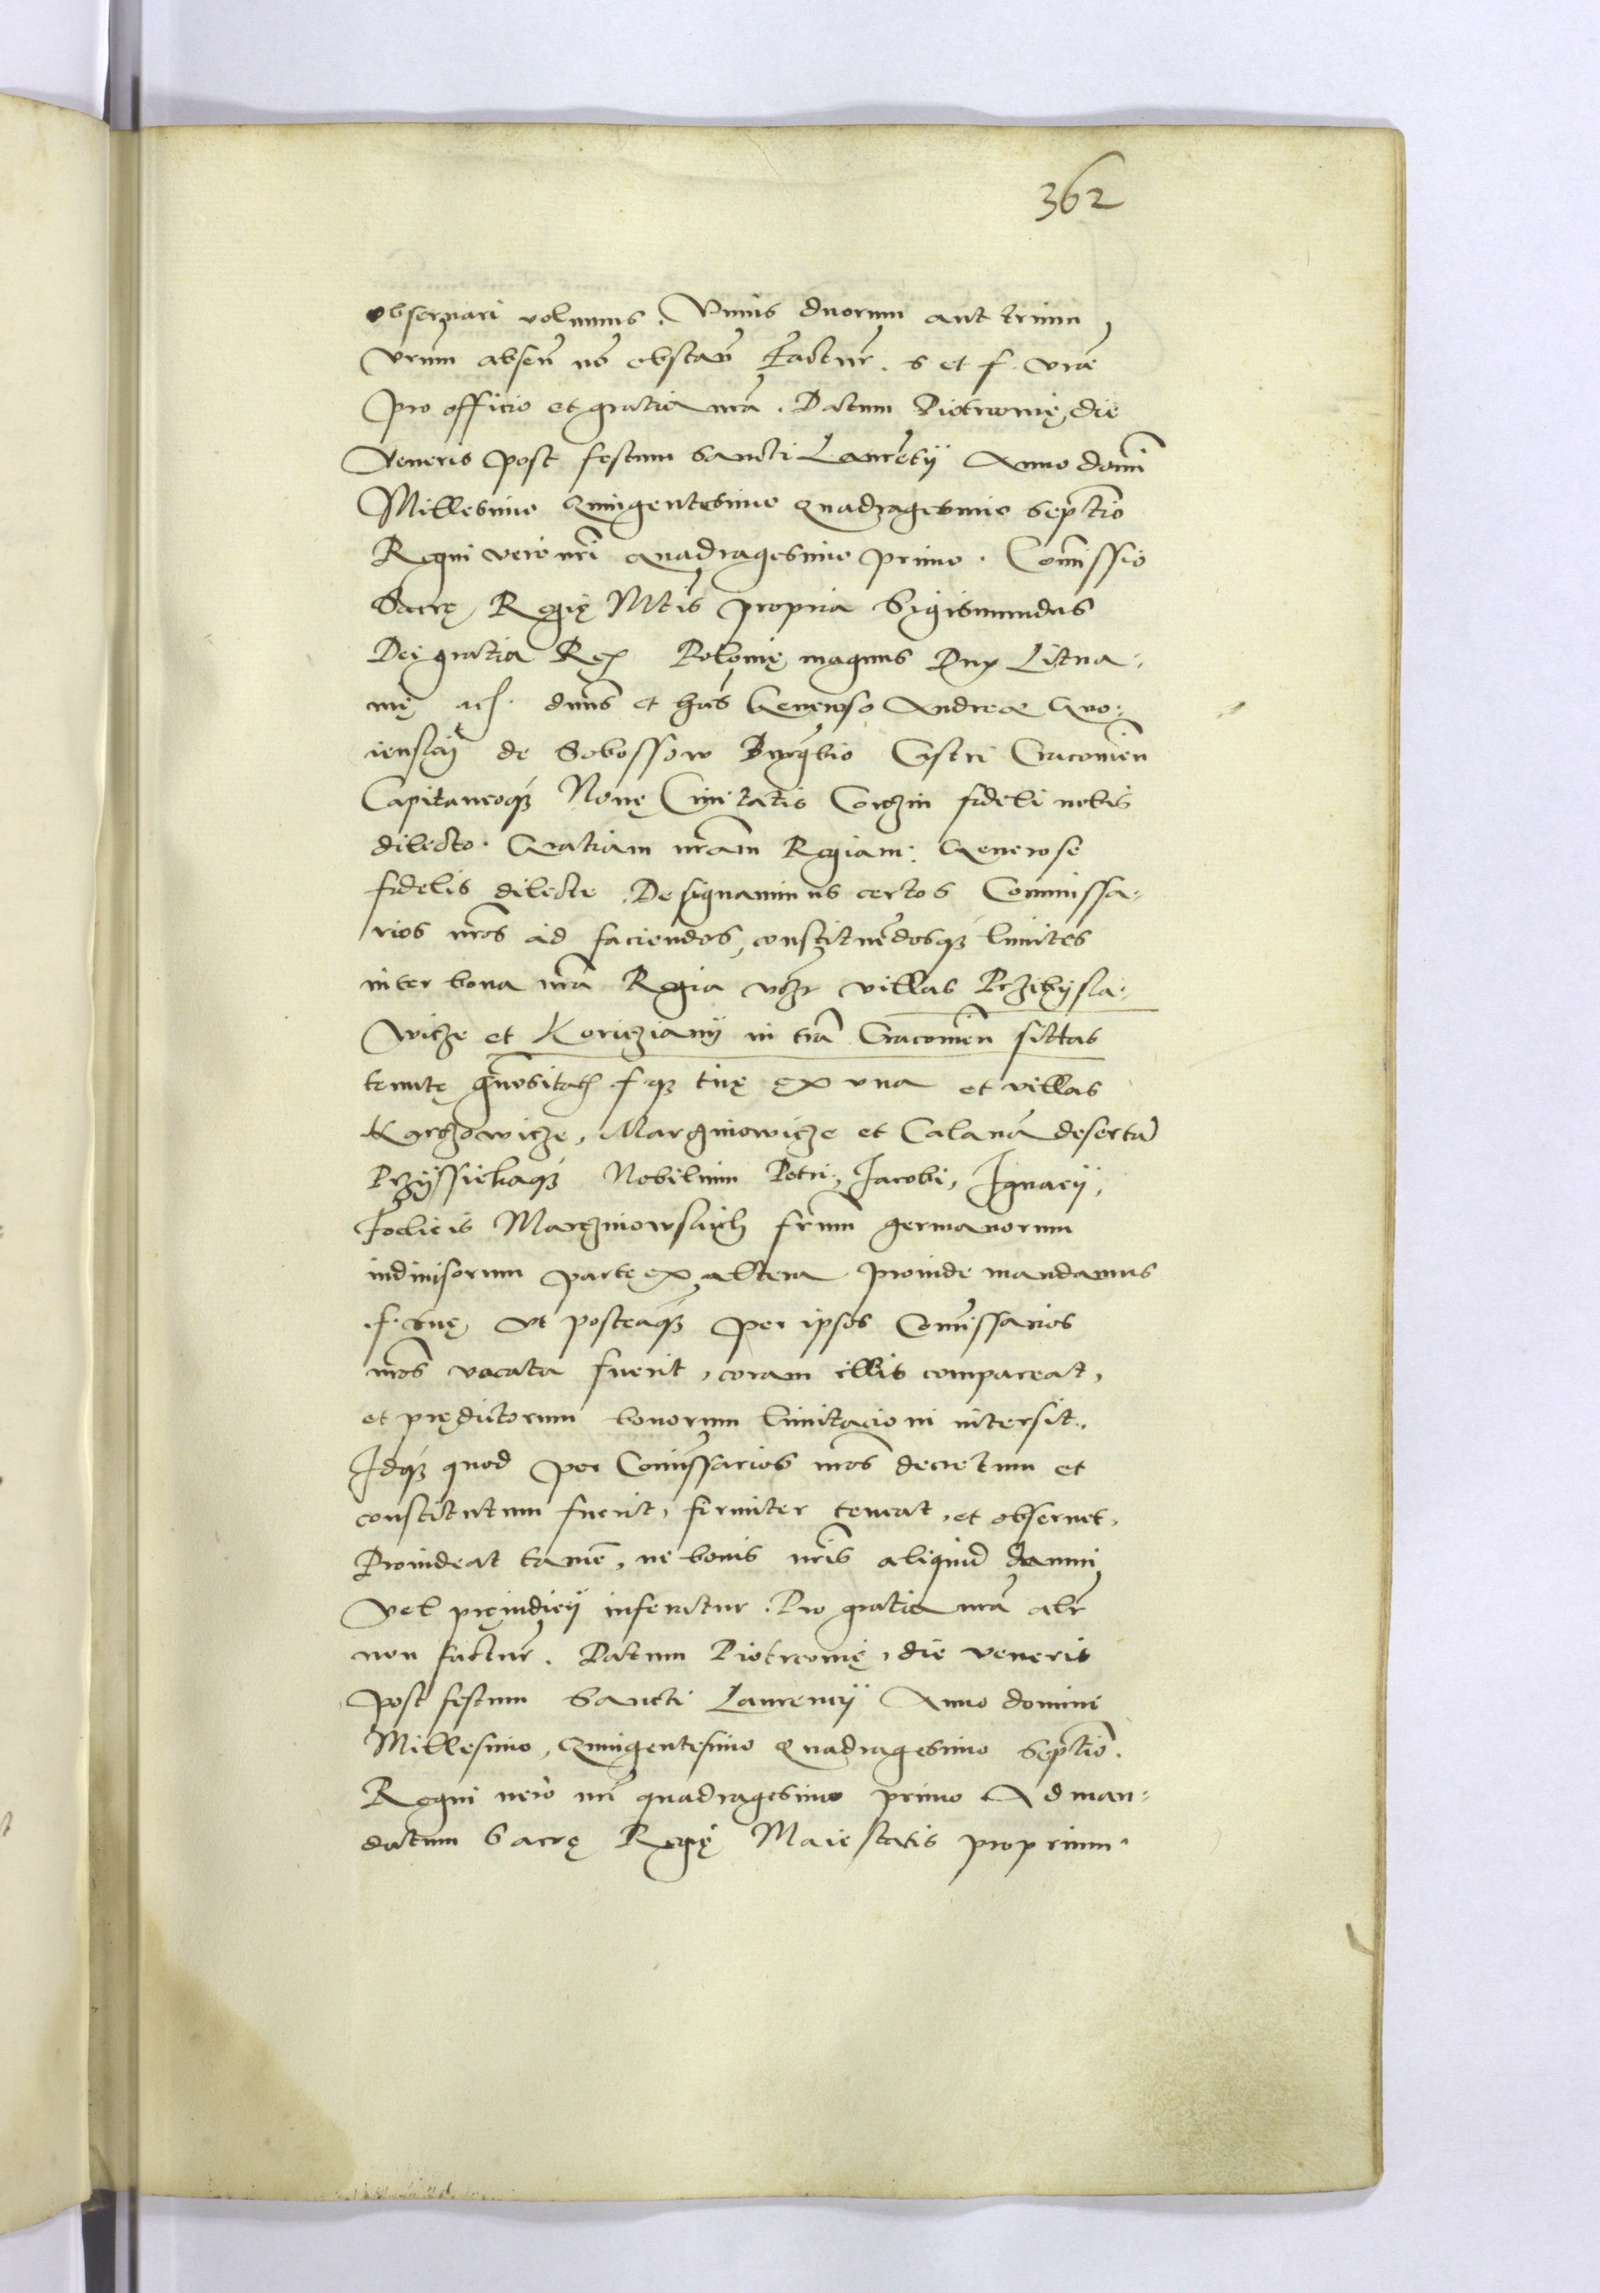 362
obseruari volumus. Vnius duorum aut trium
vrum absen no obstan factur. s et f. vrae
pro officio et gratia nra. Datum Piotrcouię die
Veneris post festum Sancti Laurentij Anno domi
Millesimo Quingentesimo Quadragesimo Septio
Regni vero nri Quadragesimo primo. Comissio
Sacrę Regię Mtis propria Sigismundus
Dei gratia Rex Polonię magnus Dux Litua-
nię dnns et hęs Generoso Andreae
de Sobossow Burgbio Castri Cracouien
Capitaneoq Nouę Ciuitatis Corzin fideli nobis
dilecto. Gratiam nram Regiam. Generose
fidelis dilecte. Designauimus certos Commissa-
rios nros ad faciendos, constituendosq limites
inter bona nra Regia vtzr villas Przibysla-
wicze et Koricziany in tra Cracouien sittas
tenutę f q tuę ex vna et villas
Karczowicze, Marcziniowicze et Calana deserta
Przyssiekaq Nobilium Petri, Jacobi, Ignacij,
Foelicis Marcziniowskich frum germanorum
indiuisorum parte ex altera proinde mandamus
f. tuę vt posteaq per ipsos Comissarios
nros vocata fuerit, coram illis compareat,
et prędictorum bonorum limitacioni intersit.
Idq quod per Comissarios nros decretum et
constitutum fuerit, firmiter teneat, et obseruet,
Prouideat tamen, ne bonis nris aliquid damni
vel pręiudicij inferatur. Pro gratia nra alr
non factur. Datum Piotrcouię, die veneris
post festum Sancti Laurencij Anno domini
Millesimo, Quingentesimo Quadragesimo Septio.
Regni uero nri quadragesimo primo Ad man-
datum Sacrę Regię Maiestatis proprium.